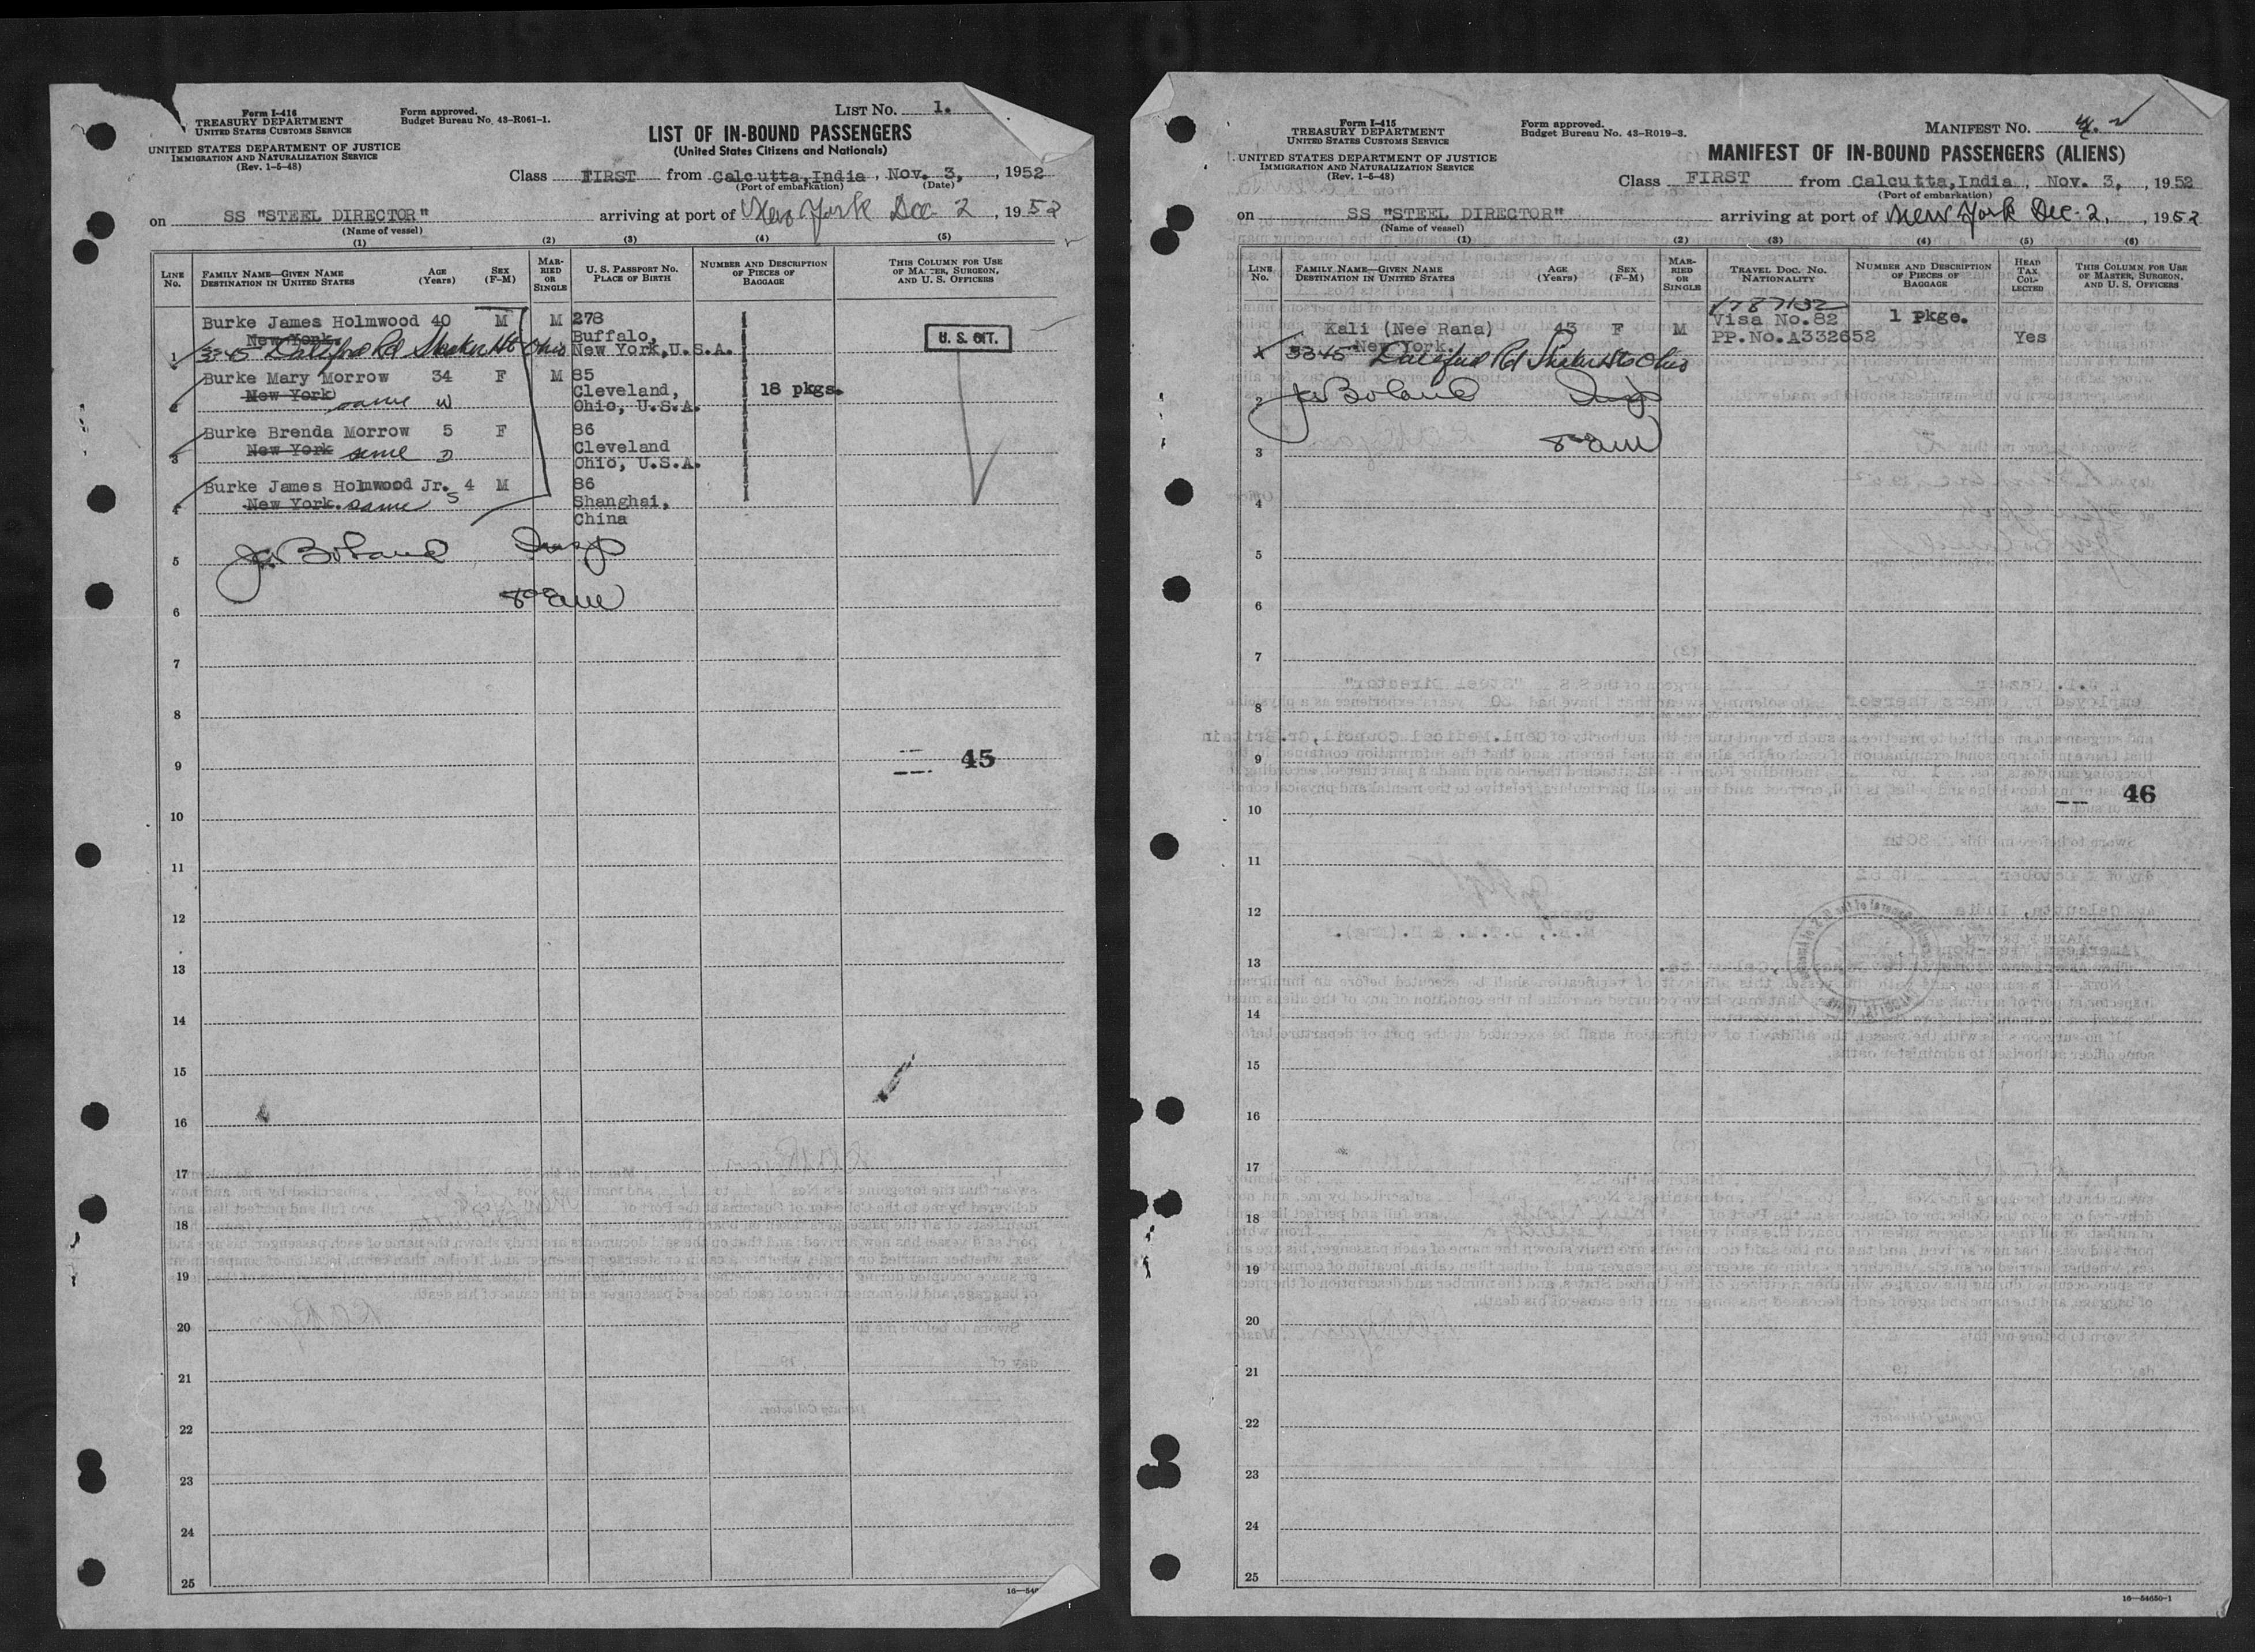 Form I-416
TREASURY DEPARTMENT
UNITED STATES CUSTOMS SERVICE
UNITED STATES DEPARTMENT OF JUSTICE
IMMIGRATION AND NATURALIZATION SERVICE
(Rev. 1-5-48)
Form approved.
Budget Bureau No. 43-R061-1.
LIST NO. 1.
LIST OF IN-BOUND PASSENGERS
(United States Citizens and Nationals)
Class FIRST from Calcutta, India, Nov. 3, 1952
(Port of embarkation) (Date)
on SS "STEEL DIRECTOR" arriving at port of New York Dec 2, 1952
(Name of vessel)
(1) (2) (3) (4) (5)
LINE NO.
FAMILY NAME—GIVEN NAME
DESTINATION IN UNITED STATES
AGE (Years)
SEX (F-M)
MARRIED OR SINGLE
U. S. PASSPORT NO.
PLACE OF BIRTH
NUMBER AND DESCRIPTION OF PIECES OF BAGGAGE
THIS COLUMN FOR USE OF MASTER, SURGEON, AND U. S. OFFICERS
Burke James Holmwood 40 M M 278
New York. Buffalo,
1 3345 Rd Shaker Hts Ohio New York, U.S.A.
U. S. CIT.
Burke Mary Morrow 34 F M 85
New York same W Cleveland,
2 Ohio, U.S.A.
18 pkgs.
Burke Brenda Morrow 5 F 86
New York same D Cleveland
3 Ohio, U.S.A.
Burke James Holmwood Jr. 4 M 86
New York. same S Shanghai,
4 China
5 Jas Boland Insp
6 8 00 am
7
8
9 45
10
11
12
13
14
15
16
17
18
19
20
21
22
23
24
25
Form I-415
TREASURY DEPARTMENT
UNITED STATES CUSTOMS SERVICE
UNITED STATES DEPARTMENT OF JUSTICE
IMMIGRATION AND NATURALIZATION SERVICE
(Rev. 1-5-48)
Form approved.
Budget Bureau No. 43-R019-3.
MANIFEST NO.
MANIFEST OF IN-BOUND PASSENGERS (ALIENS)
Class FIRST from Calcutta, India, Nov. 3, 1952
(Port of embarkation)
on SS "STEEL DIRECTOR" arriving at port of New York Dec. 2, 1952
(Name of vessel)
(1) (2) (3) (4) (5) (6)
LINE NO.
FAMILY NAME—GIVEN NAME
DESTINATION IN UNITED STATES
AGE (Years)
SEX (F-M)
MARRIED OR SINGLE
TRAVEL DOC. NO.
NATIONALITY
NUMBER AND DESCRIPTION OF PIECES OF BAGGAGE
HEAD TAX COLLECTED
THIS COLUMN FOR USE OF MASTER, SURGEON, AND U. S. OFFICERS
Kali (Nee Rana) 43 F M Visa No. 82 1 pkge.
New York. PP.No.A332652 Yes
3345 Rd Shaker Hts Ohio
2 Jas Boland Insp
3 8 00 am
4
5
6
7
8
9
10 46
11
12
13
14
15
16
17
18
19
20
21
22
23
24
25
16—54650-1